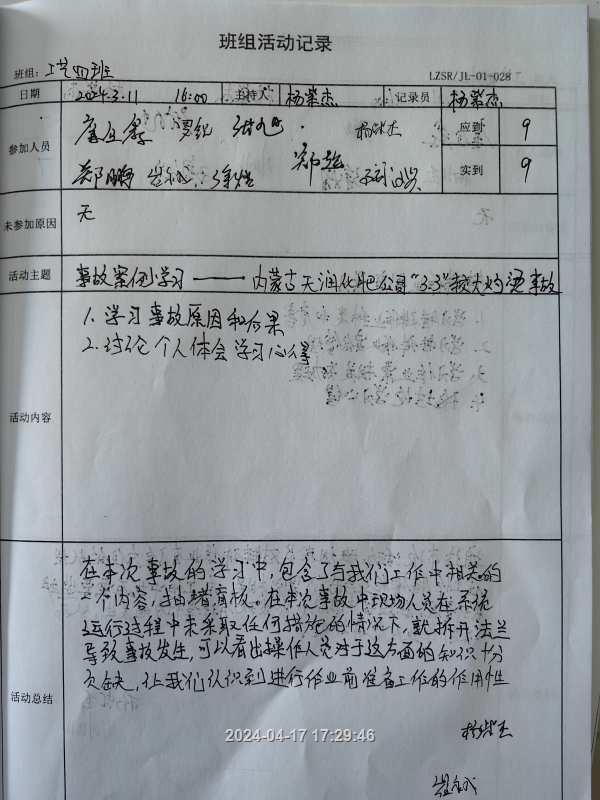 班组活动记录
班组：工艺四班 LZSR/JL-01-028
日期 2024.3.11 16:00 主持人 杨紫杰 记录员 杨紫杰
参加人员 罗锐 应到 9
郑鹏 郑超 实到 9
未参加原因 无
活动主题 事故案例学习——内蒙古天润化肥公司“3.3”较大灼烫事故
活动内容
1. 学习事故原因和后果
2. 讨论个人体会学习心得
活动总结
在本次事故的学习中，包含了与我们工作中相关的
一个内容，抽堵盲板。在本次事故中现场人员在系统
运行过程中未采取任何措施的情况下，就拆开法兰
导致事故发生，可以看出操作人员对于这方面的知识十分
欠缺，让我们认识到进行作业前准备工作的作用性
杨紫杰
2024-04-17 17:29:46